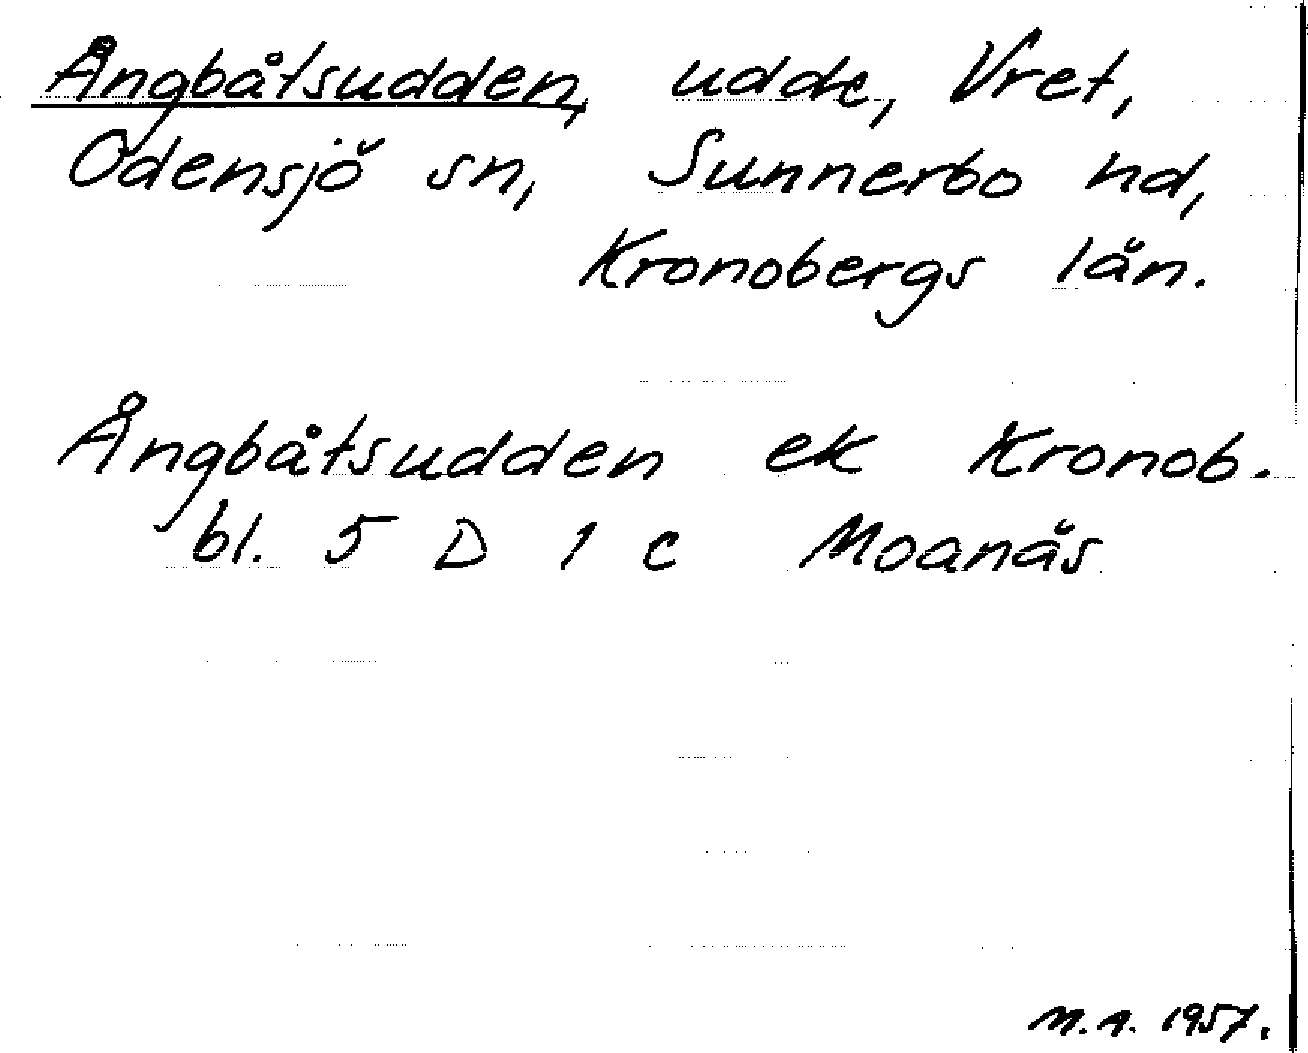 Ångbåtsudden, udde, Vret,
Odensjö sn, Sunnerbo hd,
Kronobergs län.
Ångbåtsudden ek Kronob.
bl. 5 D 1 c Moanäs
M.A. 1957.